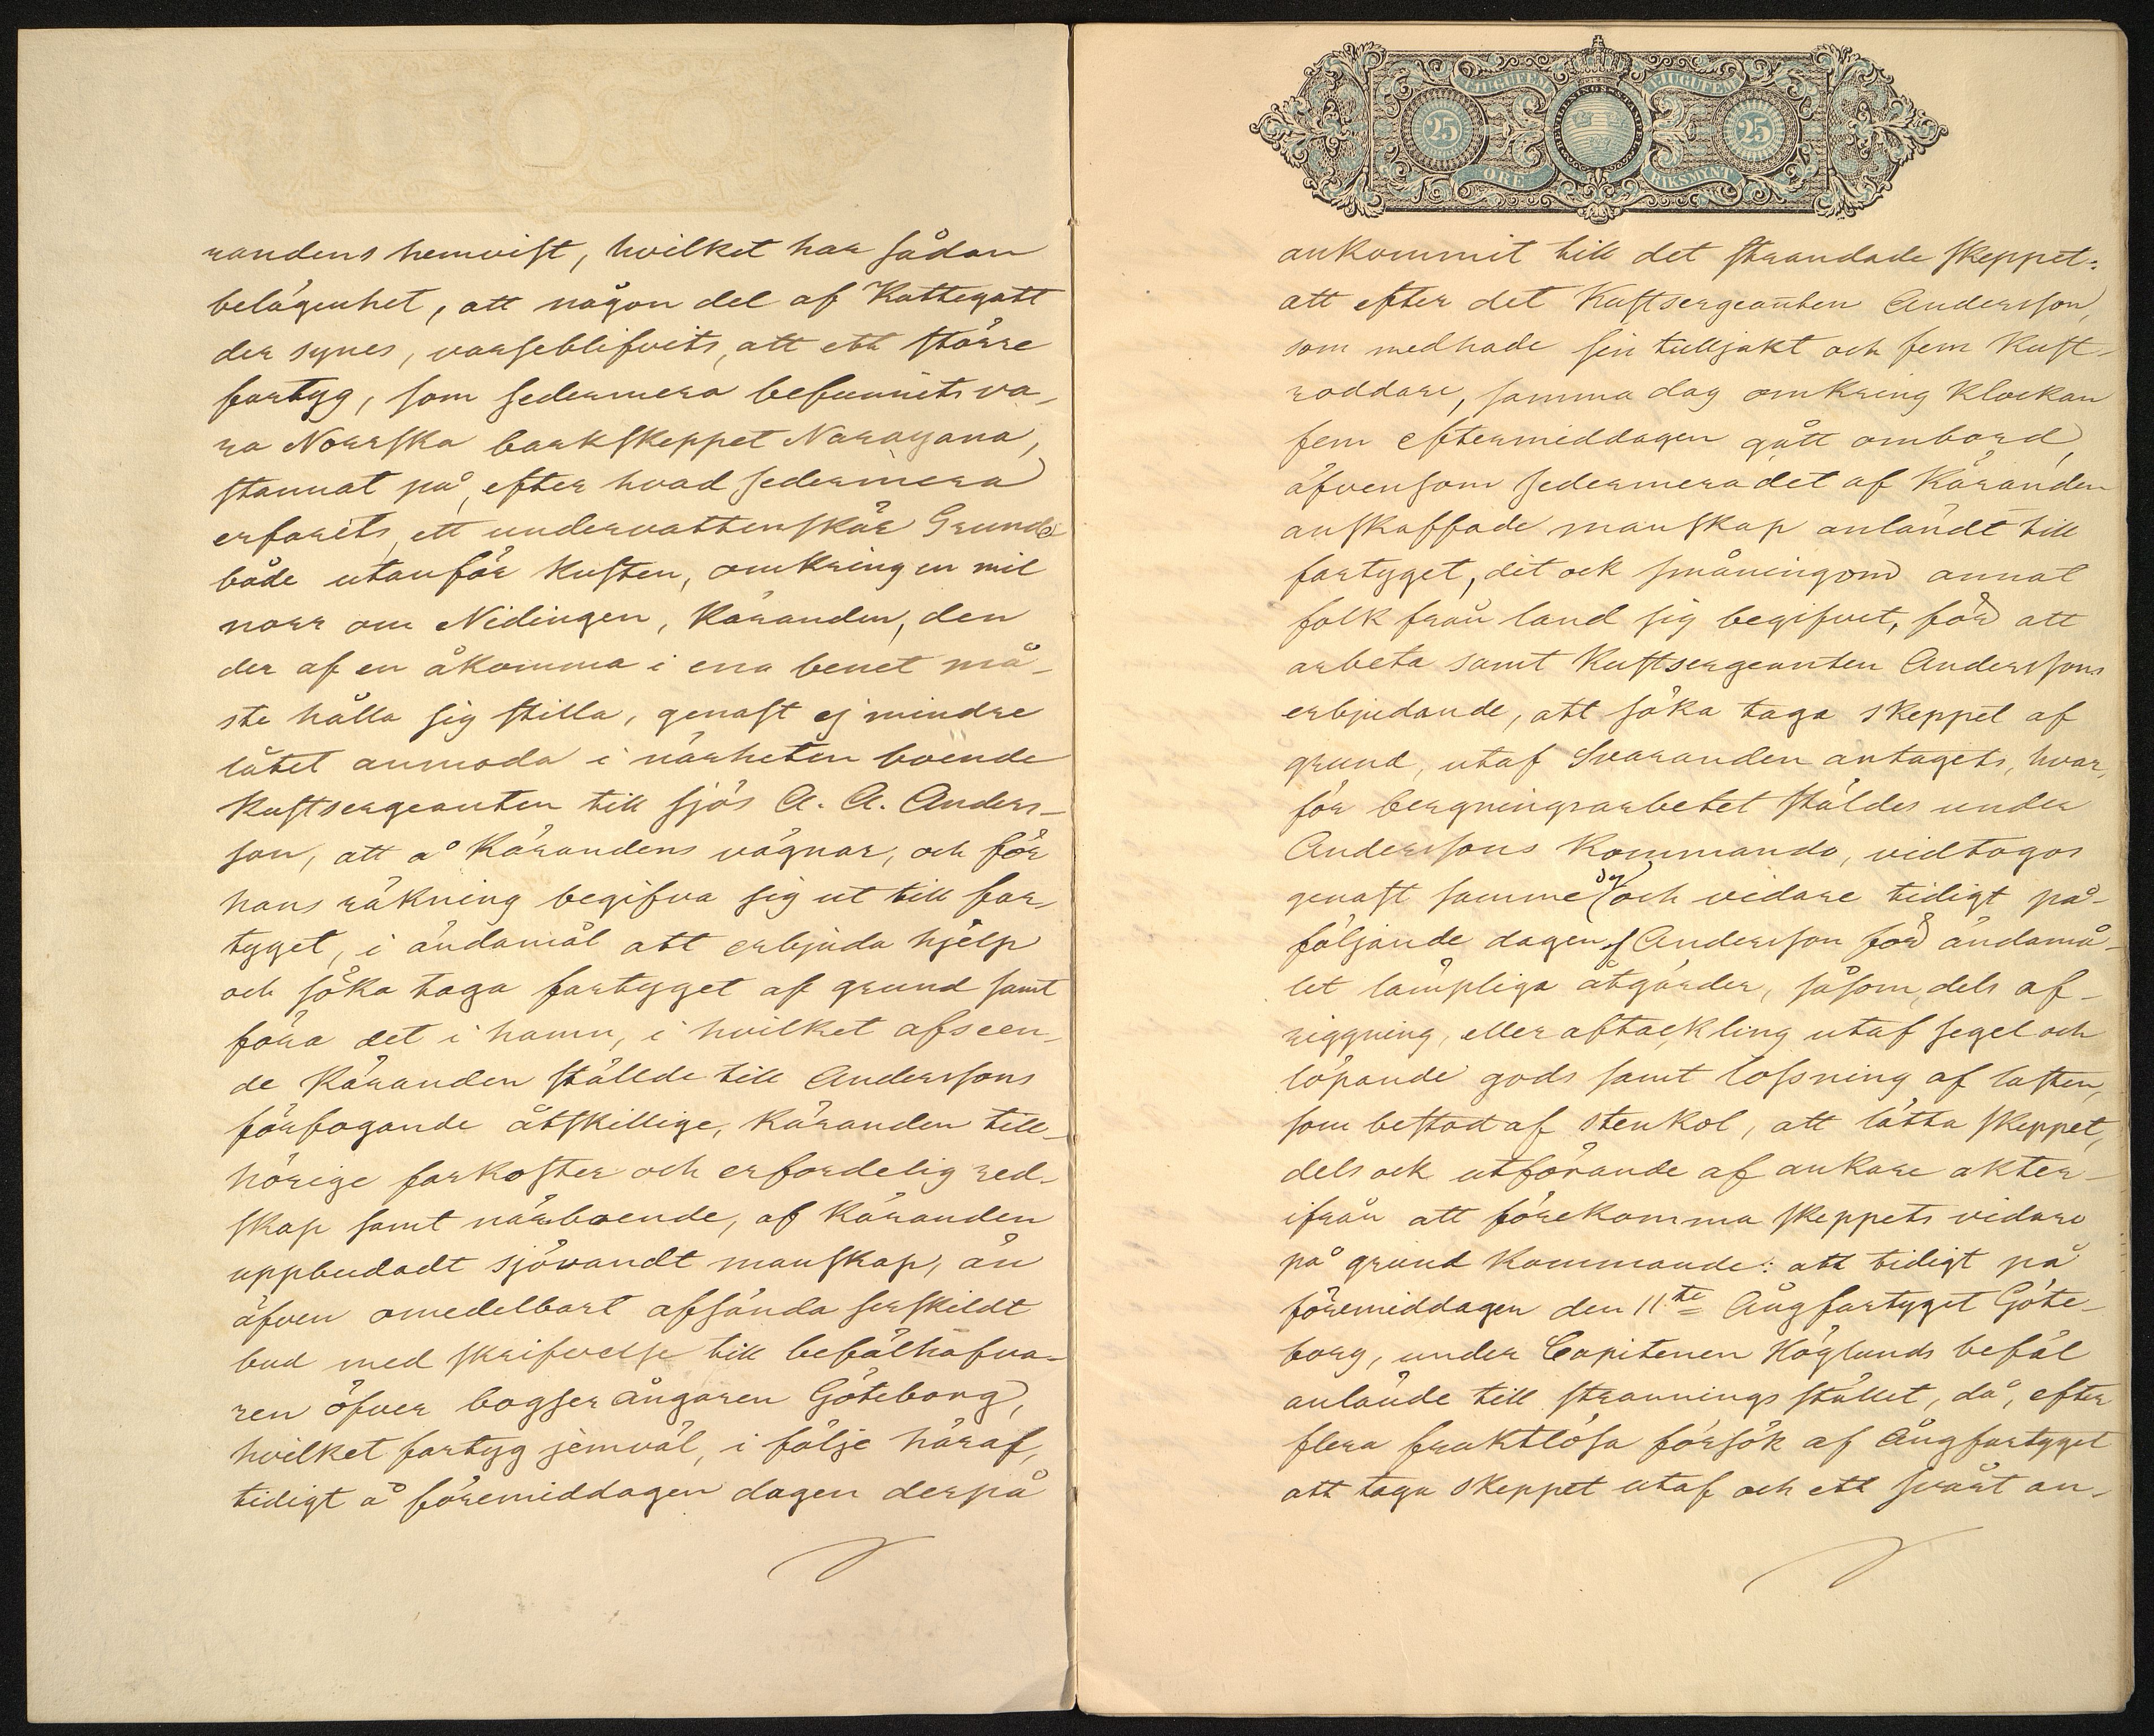 randens hemvist, hvilket har sådan
belägenhet, att någon del af Kattegatt
der synes, varseblifvits, att ett större
fartyg, som sedermera befunnits va-
ra Norrska barkskeppet Narayana,
stannat på, efter hvad sedermera
erfarits, ett undervattenskär Grunde
både utanför kusten, omkring en mil
norr om Nidingen, Käranden, den
der af en åkomma i ena benet må-
ste hålla sig stilla, genast ej mindre
låtet anmoda i närheten boende
Kustsergeanten till sjös A. A. Anders-
son, att å Kärandens vägnar, och för
hans räkning begifva sig ut till far-
tyget, i ändamål att erbjuda hjelp
och söka taga fartyget af grund samt
föra det i hamn, i hvilket afseen-
de Käranden ställde till Anderssons
förfogande åtskillige, Käranden till-
hörige farkoster och erforderlig red-
skap samt närboende, af Käranden
uppbudadt sjövandt manskap, än
äfven omedelbart afsända serskildt
bud med skrifvelse till befälhafva-
ren öfver bogserångaren Göteborg,
hvilket fartyg jemväl, i följe häraf,
tidigt å förmiddagen dagen derpå
TJUGUFEM TJUGUFEM
25 BEVILLNINGS-STÄMPEL 25
ÖRE RIKSMYNT
ankommit till det strandade skeppet:
att efter det Kustsergeanten Andersson,
som medhade sin tulljakt och fem Kust-
roddare, samma dag omkring klockan
fem eftermiddagen gått ombord,
äfvensom sedermera det af Käranden
anskaffade manskap anländt till
fartyget, dit ock småningom annat
folk från land sig begifvet, för att
arbeta samt Kustsergeanten Anderssons
erbjudande, att söka taga skeppet af
grund, utaf Svaranden antagets, hvar-
för bergningsarbetet stäldes under
Anderssons kommando, vidtogos
genast samme dag och vidare tidigt på-
följande dagen af Andersson för ändamå-
let lämpliga åtgärder, såsom, dels af-
riggning, eller aftackling utaf segel och
löpande gods samt lossning af lasten,
som bestod af stenkol, att lätta skeppet,
dels ock utförande af ankare akter-
ifrån att förekomma skeppets vidare
på grund kommande: att tidigt på
förmiddagen den 11te Ångfartyget Göte-
borg, under Capitenen Höglunds befäl
anlände till stranningsstället, då, efter
flera fruktlösa försök af Ångfartyget
att taga skeppet utaf och ett svårt an-